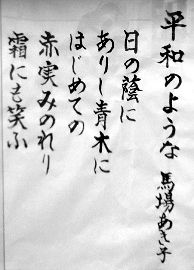 平和のような 馬場あき子
日の蔭に
ありし青木に
はじめての
赤実みのれり
霜にも笑ふ